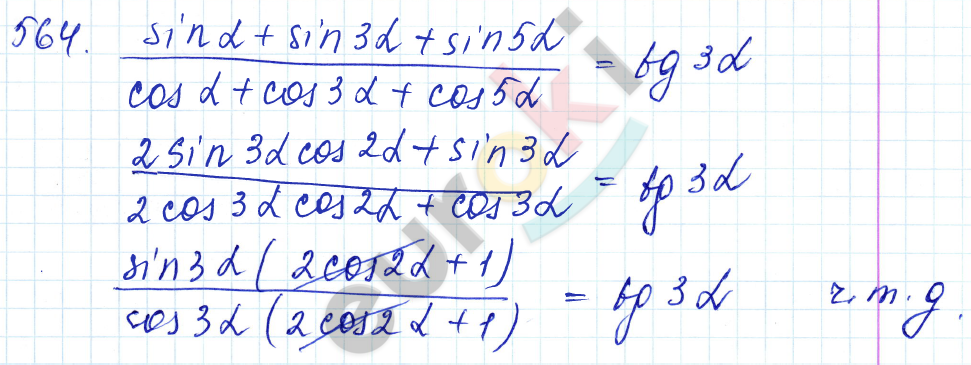 564. sinα + sin3α + sin5α
cosα + cos3α + cos5α = tg3α
2sin3αcos2α + sin3α
2cos3αcos2α + cos3α = tg3α
sin3α(2cos2α + 1)
cos3α(2cos2α + 1) = tg3α ч.т.д.
euroki